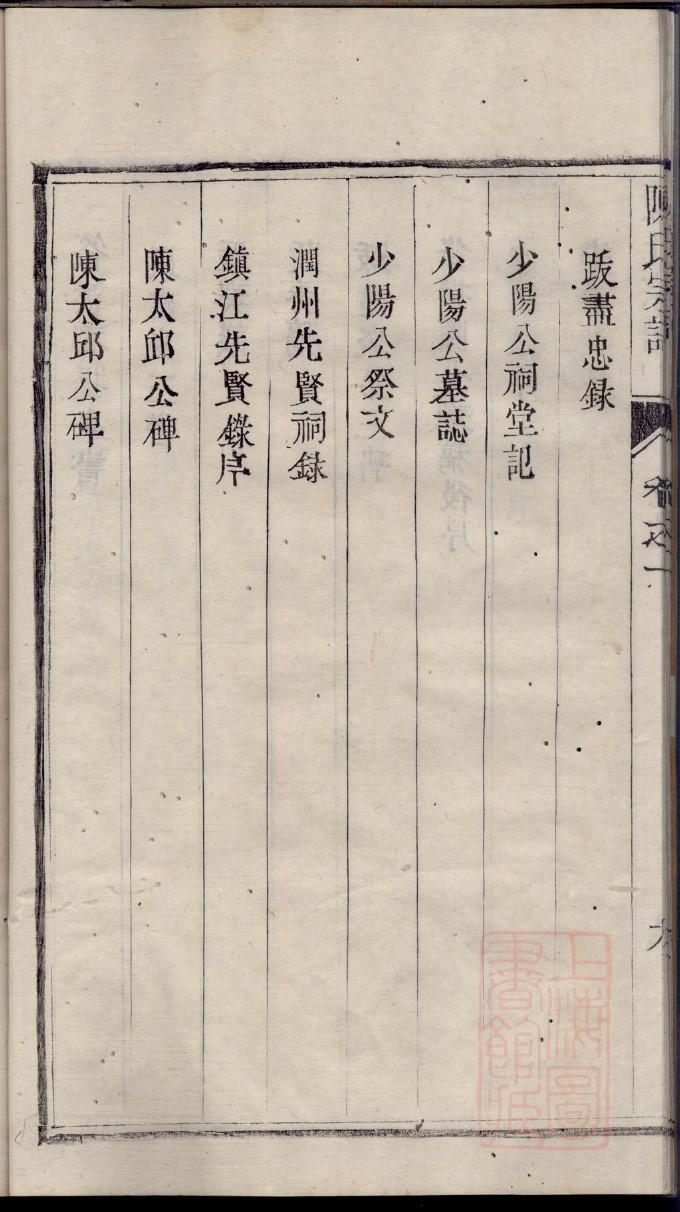 陳氏宗譜
卷之一
六
跋盡忠録
少陽公祠堂記
少陽公墓誌
少陽公祭文
潤州先賢祠録
鎮江先賢錄序
陳太邱公碑
陳太邱公碑
上海圖書館藏